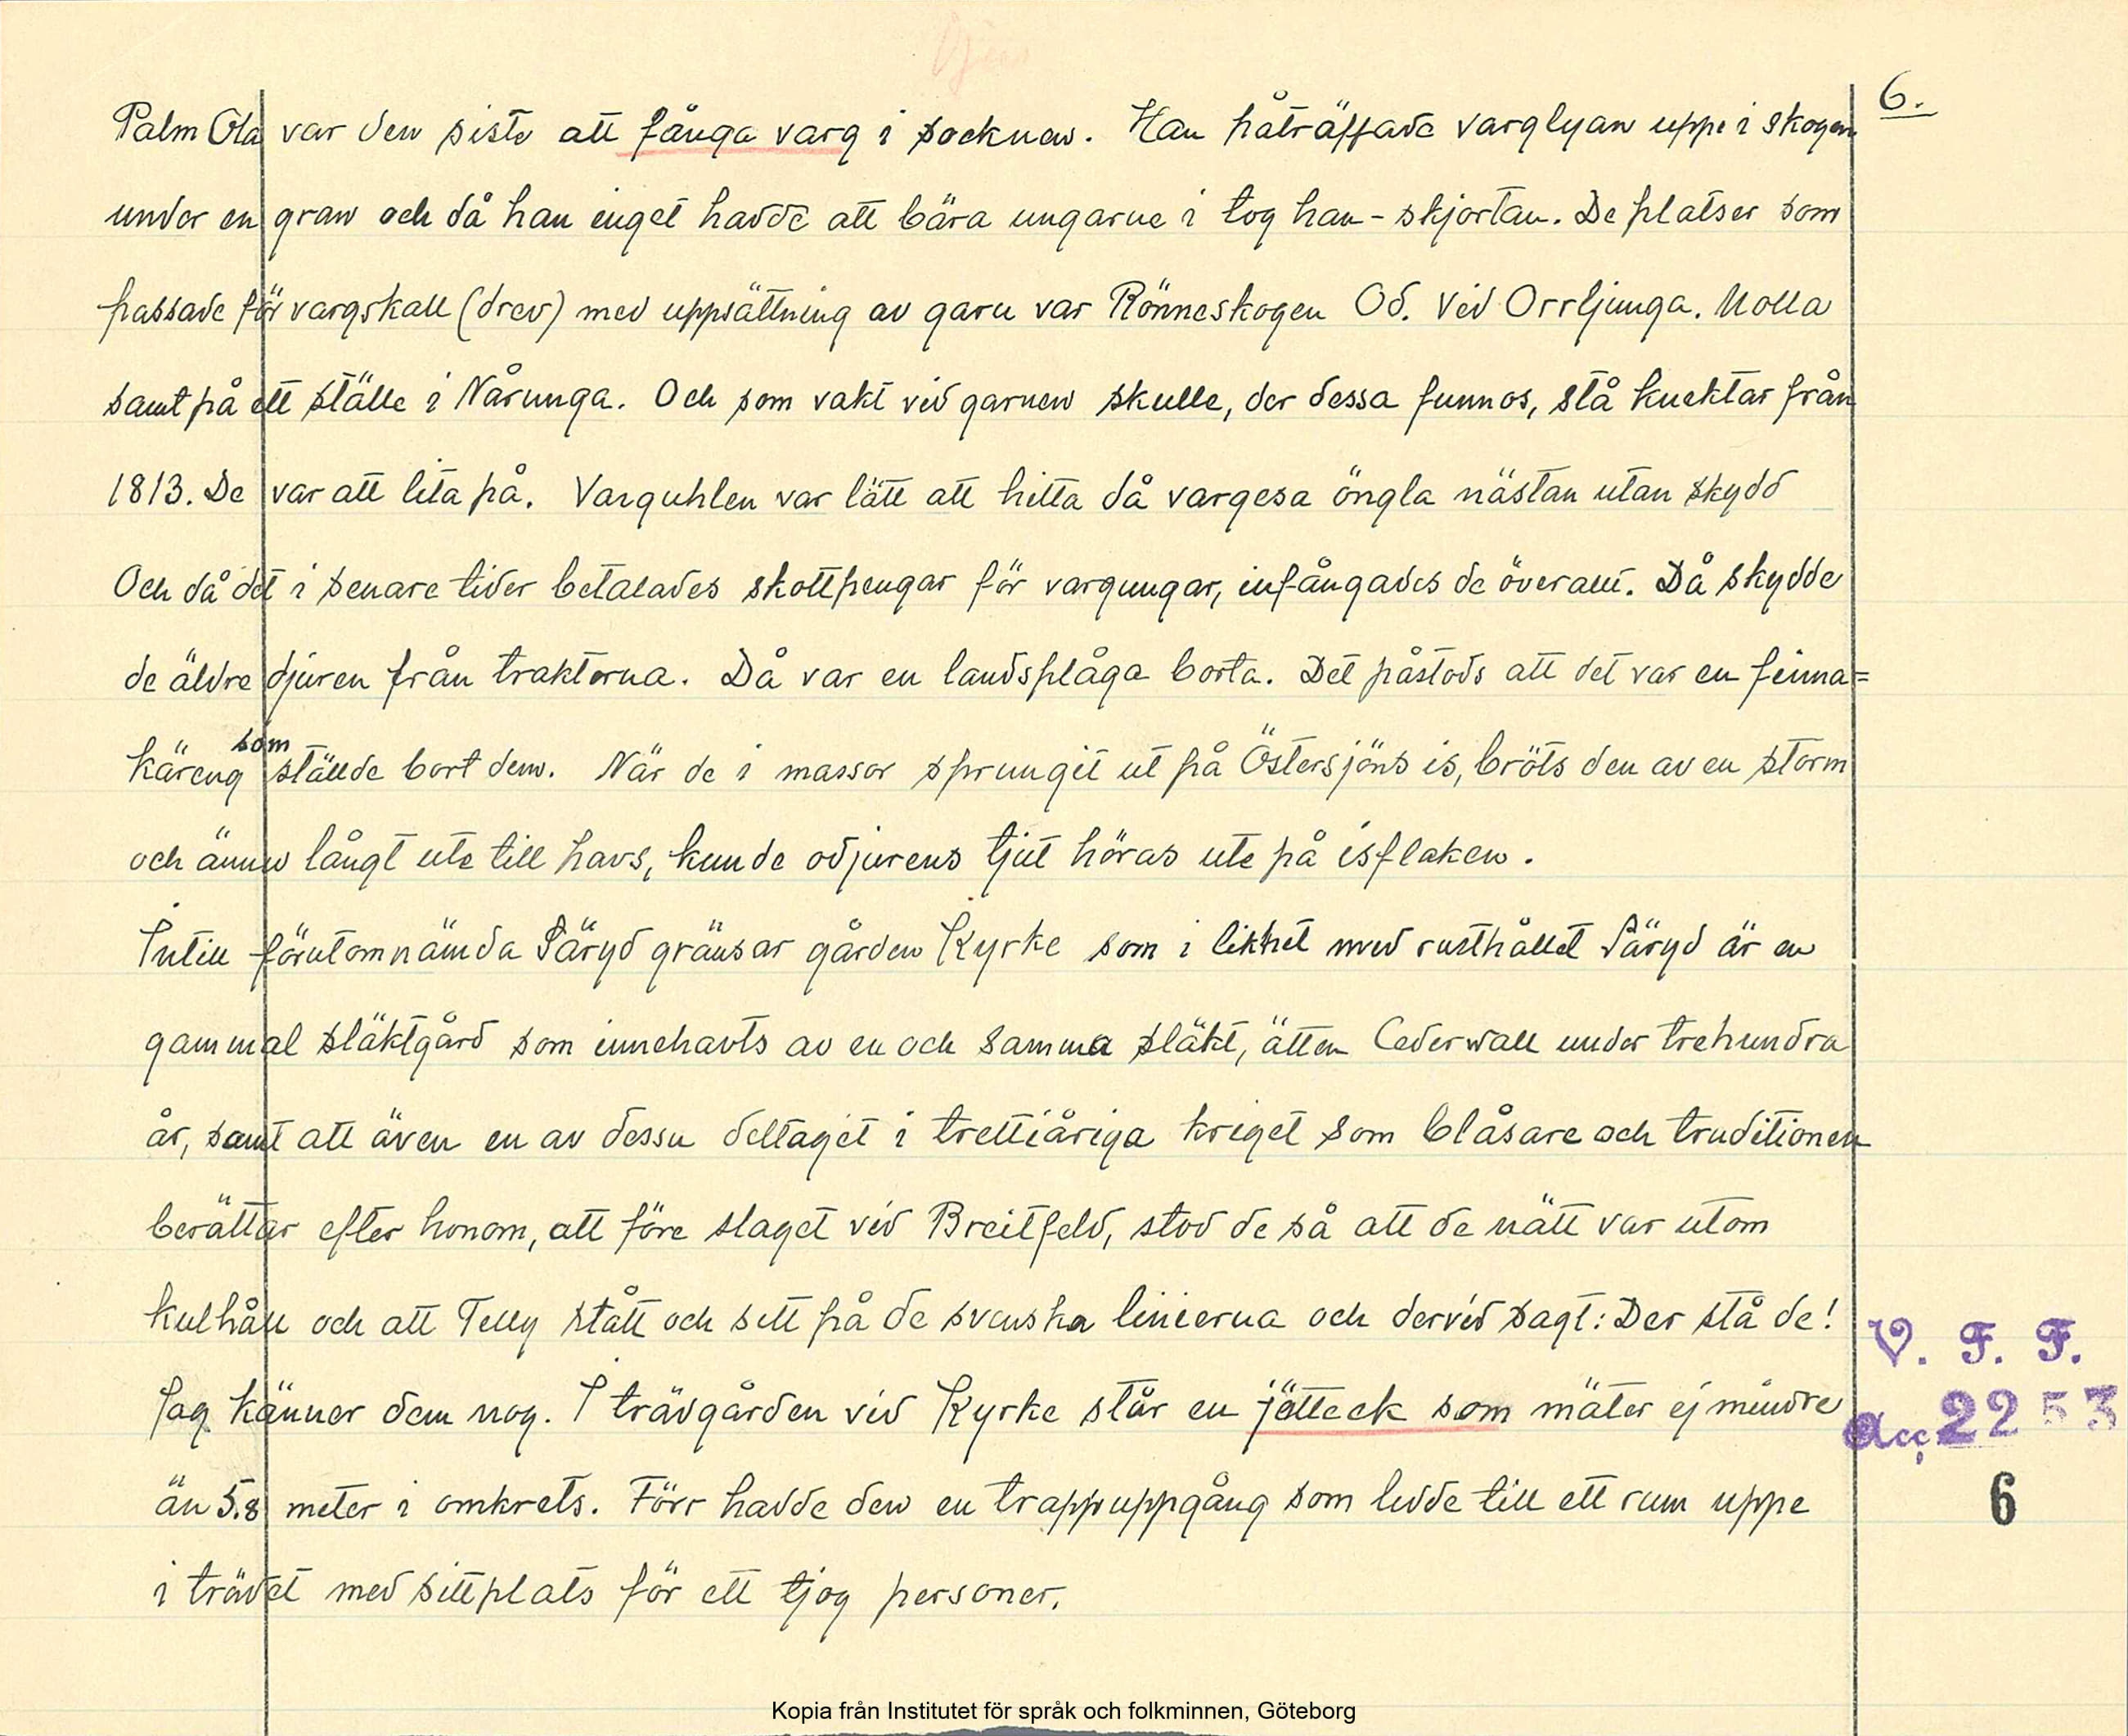 6.
Palm Ola var den siste att fånga varg i socknen. Han påträffade varglyan uppe i skogen
under en gran och då han inget hadde att bära ungarne i tog han - skjortan. De platser som
passade för vargskall (drev) med uppsättning av garn var Rönneskogen Od. Vid Orrljunga. Molla
samt på ett ställe i Nårunga. Och som vakt vid garnen skulle, der dessa funnos, stå knektar från
1813. De var att lita på. Varguhlen var lätt att hitta då vargesa öngla nästan utan skydd
Och då det i senare tider betalades skottpengar för vargungar, infångades de överallt. Då skydde
de äldre djuren från trakterna. Då var en landsplåga borta. Det påstods att det var en finna=
käreng som ställde bort dem. När de i massor sprungit ut på Östersjöns is, bröts den av en storm
och ännu långt ute till havs, kunde odjurens tjut höras ute på isflaken.
Intill förutomnämda Säryd gränsar gården Kyrke som i likhet med rusthållet Säryd är en
gammal släktgård som innehavts av en och samma släkt, ätten Cederwall under trehundra
år, samt att även en av dessa deltaget i trettiåriga kriget som blåsare och traditionen
berättar efter honom, att före slaget vid Breitfeld, stod de så att de nätt var utom
kulhåll och att Telly stått och sett på de svenska linierna och dervid sagt: Der stå de!
Jag känner dem nog. I trädgården vid Kyrke står en jätteek som mäter ej mindre
än 5.8 meter i omkrets. Förr hadde den en trappuppgång som ledde till ett rum uppe
i trädet med sittplats för ett tjog personer.
V. F. F.
Acc. 2253
6
Kopia från Institutet för språk och folkminnen, Göteborg